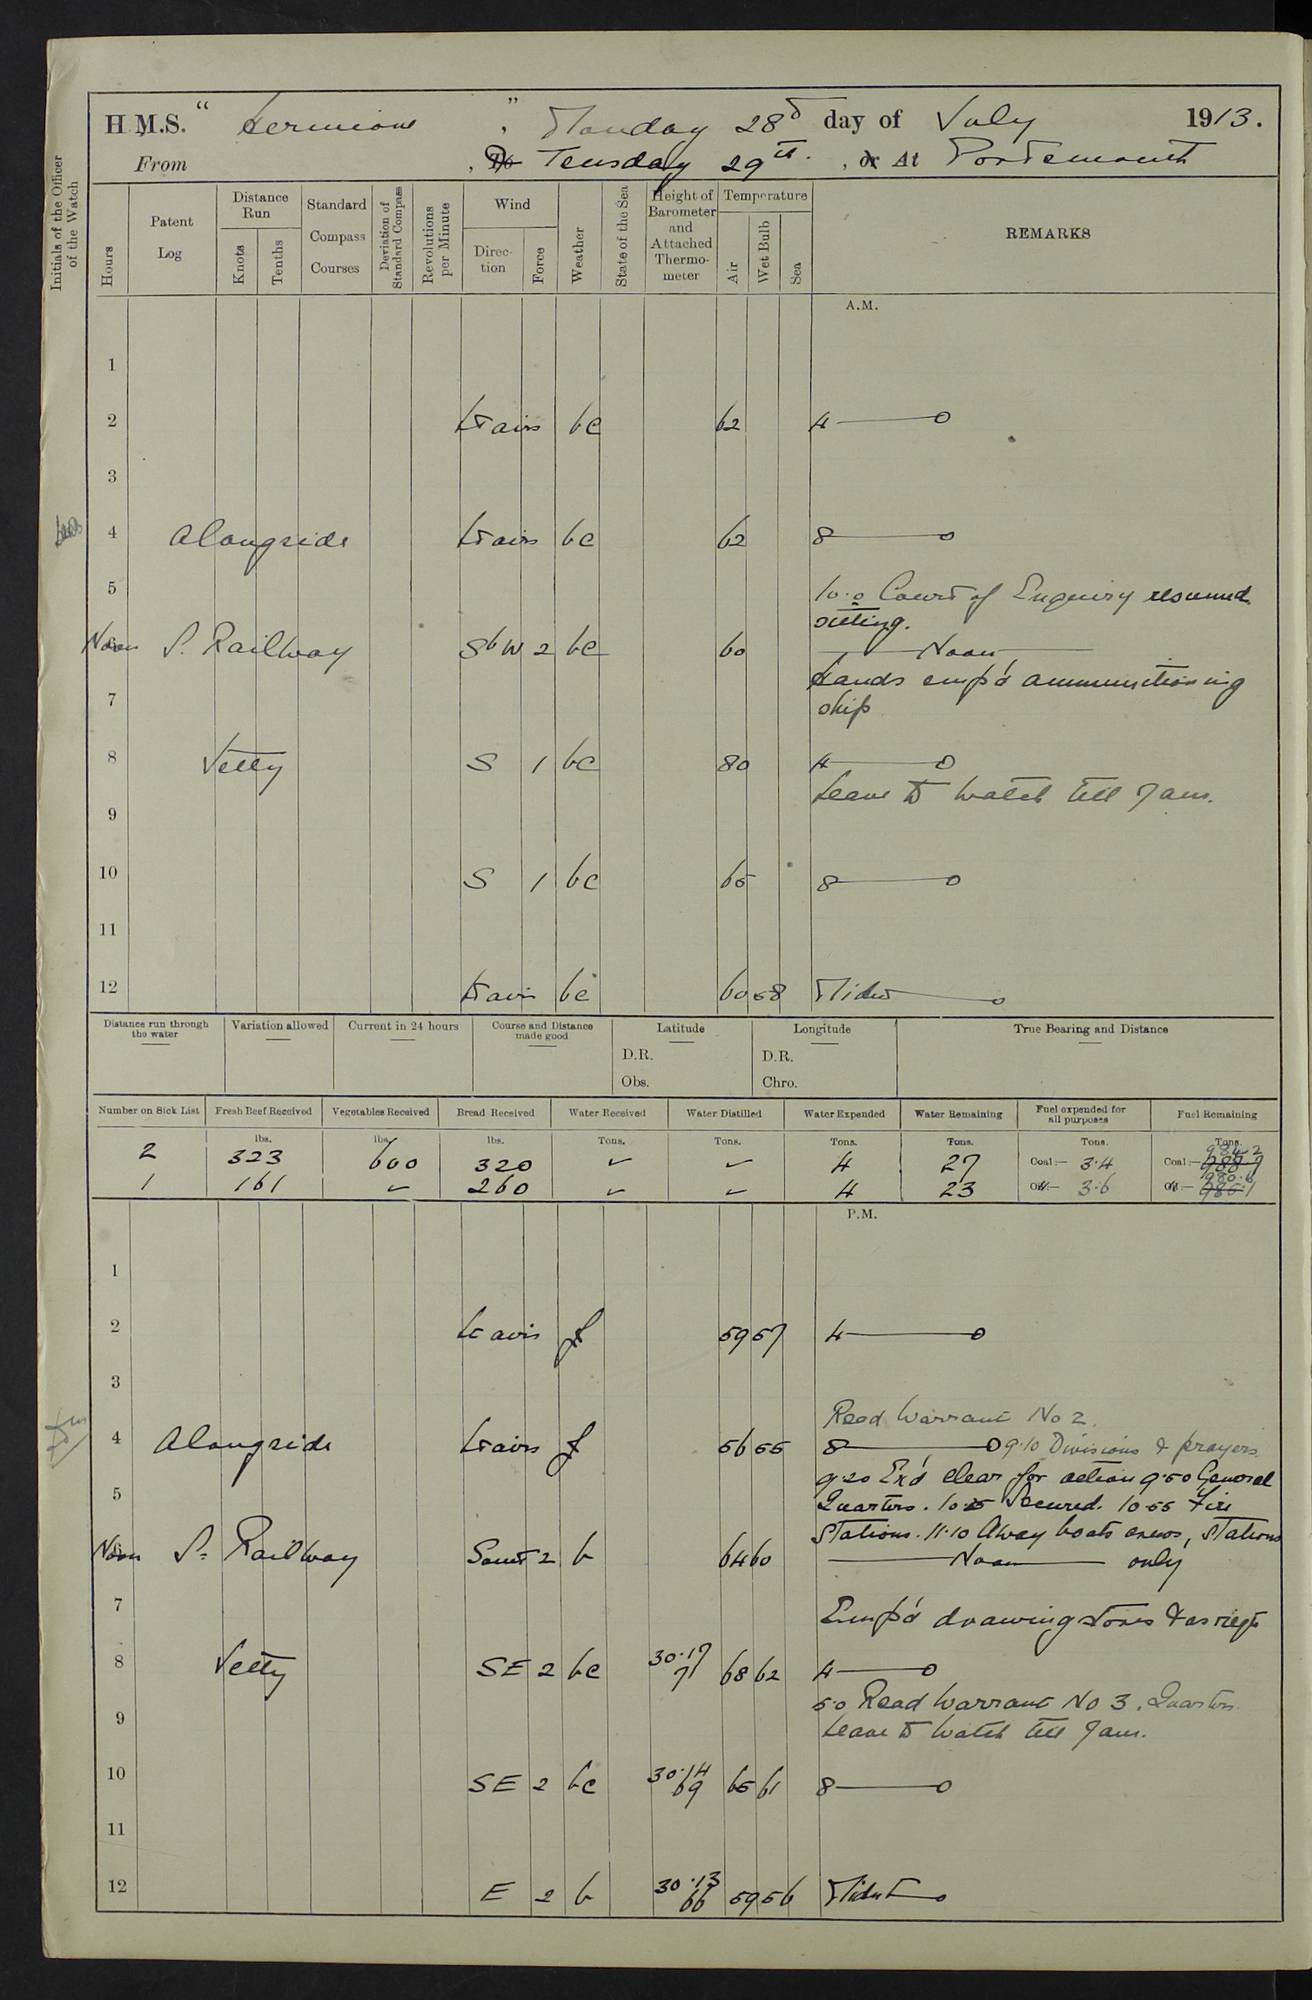 H.M.S. "Hermione", Monday 28th day of July 1913.
From , To Teusday 29th. , or At Portsmouth
Initials of the Officer of the Watch
Hours
Patent Log
Distance Run
Knots
Tenths
Standard Compass Courses
Deviation of Standard Compass
Revolutions per Minute
Wind
Direction
Force
Weather
State of the Sea
Height of Barometer and Attached Thermometer
Temperature
Air
Wet Bulb
Sea
REMARKS
A.M.
1
2 Lt airs bc 62 4
3
4 Alongside Lt airs bc 62 8
5 10.0 Court of Enquiry resumed
sitting.
Noon S. Railway SbW 2 bc 60 Noon
Hands emp'd ammunitioning
7 ship
8 Jetty S 1 bc 80 4
Leave to watch till 7 am.
9
10 S 1 bc 65 8
11
12 Lt airs bc 60 58 Midnt
Distance run through the water
Variation allowed
Current in 24 hours
Course and Distance made good
Latitude
D.R.
Obs.
Longitude
D.R.
Chro.
True Bearing and Distance
Number on Sick List
Fresh Beef Received
Vegetables Received
Bread Received
Water Received
Water Distilled
Water Expended
Water Remaining
Fuel expended for all purposes
Fuel Remaining
lbs. lbs. lbs. Tons. Tons. Tons. Tons. Tons. Tons.
984.2
2 323 600 320 ✓ ✓ 4 27 Coal:— 3.4 Coal:—
980.6
1 161 ✓ 260 ✓ ✓ 4 23 Oil:— 3.6 Oil:—
P.M.
1
2 Lt airs f 59 57 4
3
Read Warrant No 2.
4 Alongside Lt airs f 56 55 8 9.10 Divisions & prayers
9.20 Ex'd clear for action 9.50 General
5 Quarters. Secured. 10.55 Fire
Stations. 11.10 Away boats crews, Stations
Noon S. Railway South 2 b 64 60 Noon only
7 Emp'd drawing stores & as reqte
8 Jetty SE 2 bc 30.17 71 68 62 4
5.0 Read Warrant No 3. Quarters.
9 Leave to watch till 7 am.
10 SE 2 bc 30.14 69 65 61 8
11
12 E 2 b 30.13 66 59 56 Midnt